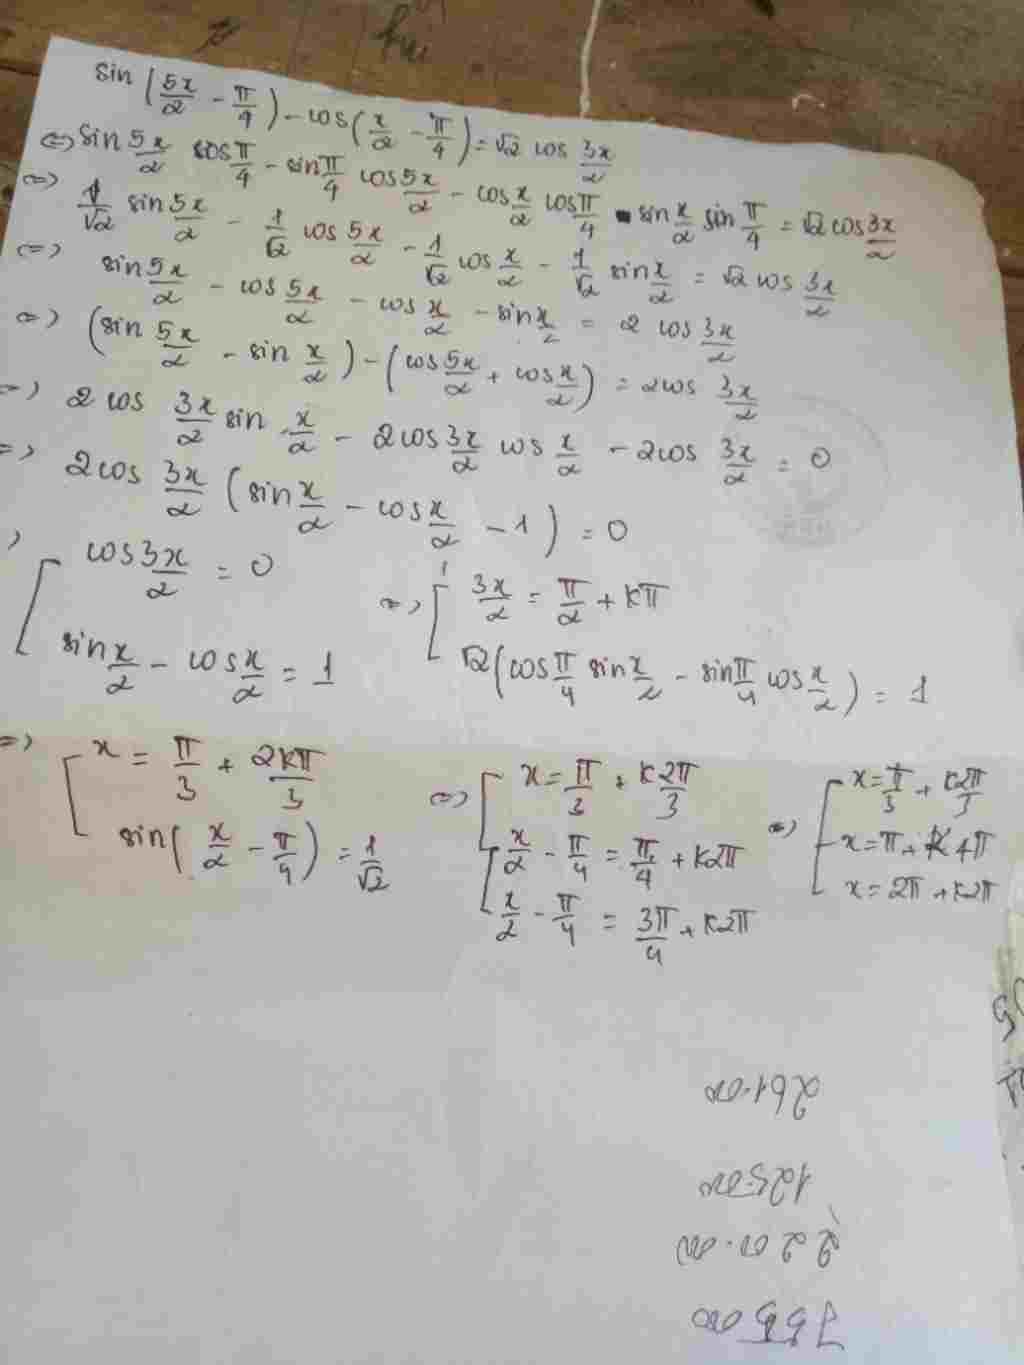 sin(5x/2 - π/4) - cos(x/2 - π/4) = √2 cos 3x/2
<=> sin 5x/2 cos π/4 - sin π/4 cos 5x/2 - cos x/2 cos π/4 - sin x/2 sin π/4 = √2 cos 3x/2
<=> 1/√2 sin 5x/2 - 1/√2 cos 5x/2 - 1/√2 cos x/2 - 1/√2 sin x/2 = √2 cos 3x/2
<=> sin 5x/2 - cos 5x/2 - cos x/2 - sin x/2 = 2 cos 3x/2
<=> (sin 5x/2 - sin x/2) - (cos 5x/2 + cos x/2) = 2cos 3x/2
=> 2 cos 3x/2 sin x/2 - 2cos 3x/2 cos x/2 - 2cos 3x/2 = 0
=> 2cos 3x/2 (sin x/2 - cos x/2 - 1) = 0
[ cos 3x/2 = 0 <=> [ 3x/2 = π/2 + kπ
sin x/2 - cos x/2 = 1 √2(cos π/4 sin x/2 - sin π/4 cos x/2) = 1
=> [ x = π/3 + 2kπ/3 <=> [ x = π/3 + k2π/3 <=> [ x = π/3 + k2π/3
sin(x/2 - π/4) = 1/√2 [ x/2 - π/4 = π/4 + k2π x = π + k4π
x/2 - π/4 = 3π/4 + k2π x = 2π + k2π